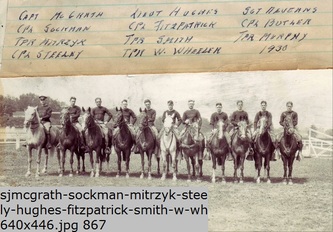 Capt McGrath Lieut Hughes Sgt Nevenns
Cpl Sockman Cpl Fitzpatrick Cpl Butler
Tpr Mitrzyk Tpr Smith Tpr Murphy
Cpl Steeley Tpr W. Wheeler 1930
sjmcgrath-sockman-mitrzyk-stee
ly-hughes-fitzpatrick-smith-w-wh
640x446.jpg 867